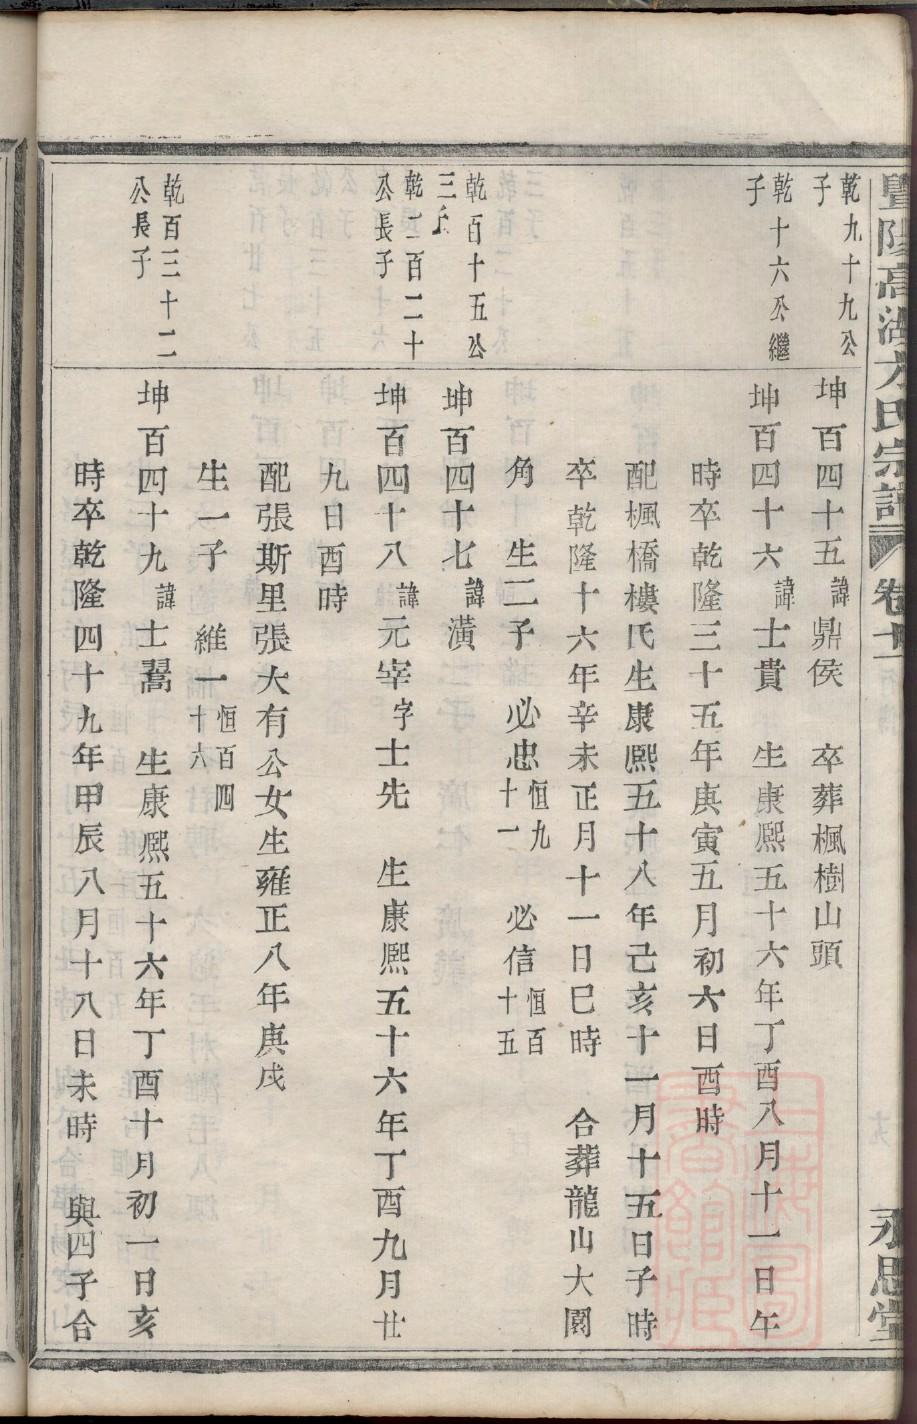 暨陽高湖方氏宗譜 卷十一 永思堂
乾九十九公
子
坤百四十五諱鼎侯 卒葬楓樹山頭
乾十六公繼
子
坤百四十六諱士貴 生康熙五十六年丁酉八月十一日午
時卒乾隆三十五年庚寅五月初六日酉時
配楓橋樓氏生康熙五十八年己亥十一月十五日子時
卒乾隆十六年辛未正月十一日巳時 合葬龍山大園
角 生二子 必忠恒九十一 必信恒百十五
乾百十五公
三子
坤百四十七諱潢
乾二百二十
公長子
坤百四十八諱元宰字士先 生康熙五十六年丁酉九月廿
九日酉時
配張斯里張大有公女生雍正八年庚戌
生一子 維一恒百四十六
乾百三十二
公長子
坤百四十九諱士翥 生康熙五十六年丁酉十月初一日亥
時卒乾隆四十九年甲辰八月十八日未時 與四子合